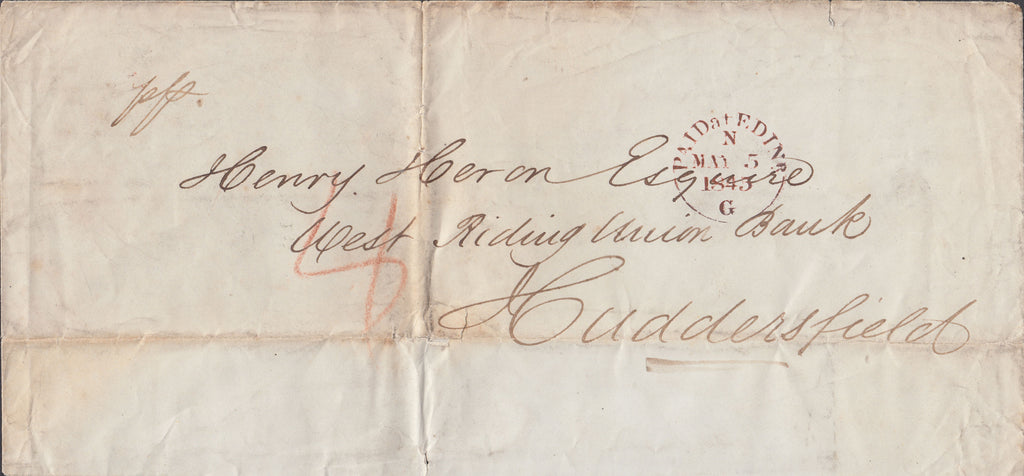 PAID at EDINR
N
MAY 5
1843
G
Henry Heron Esquire
West Riding Union Bank
Huddersfield
4